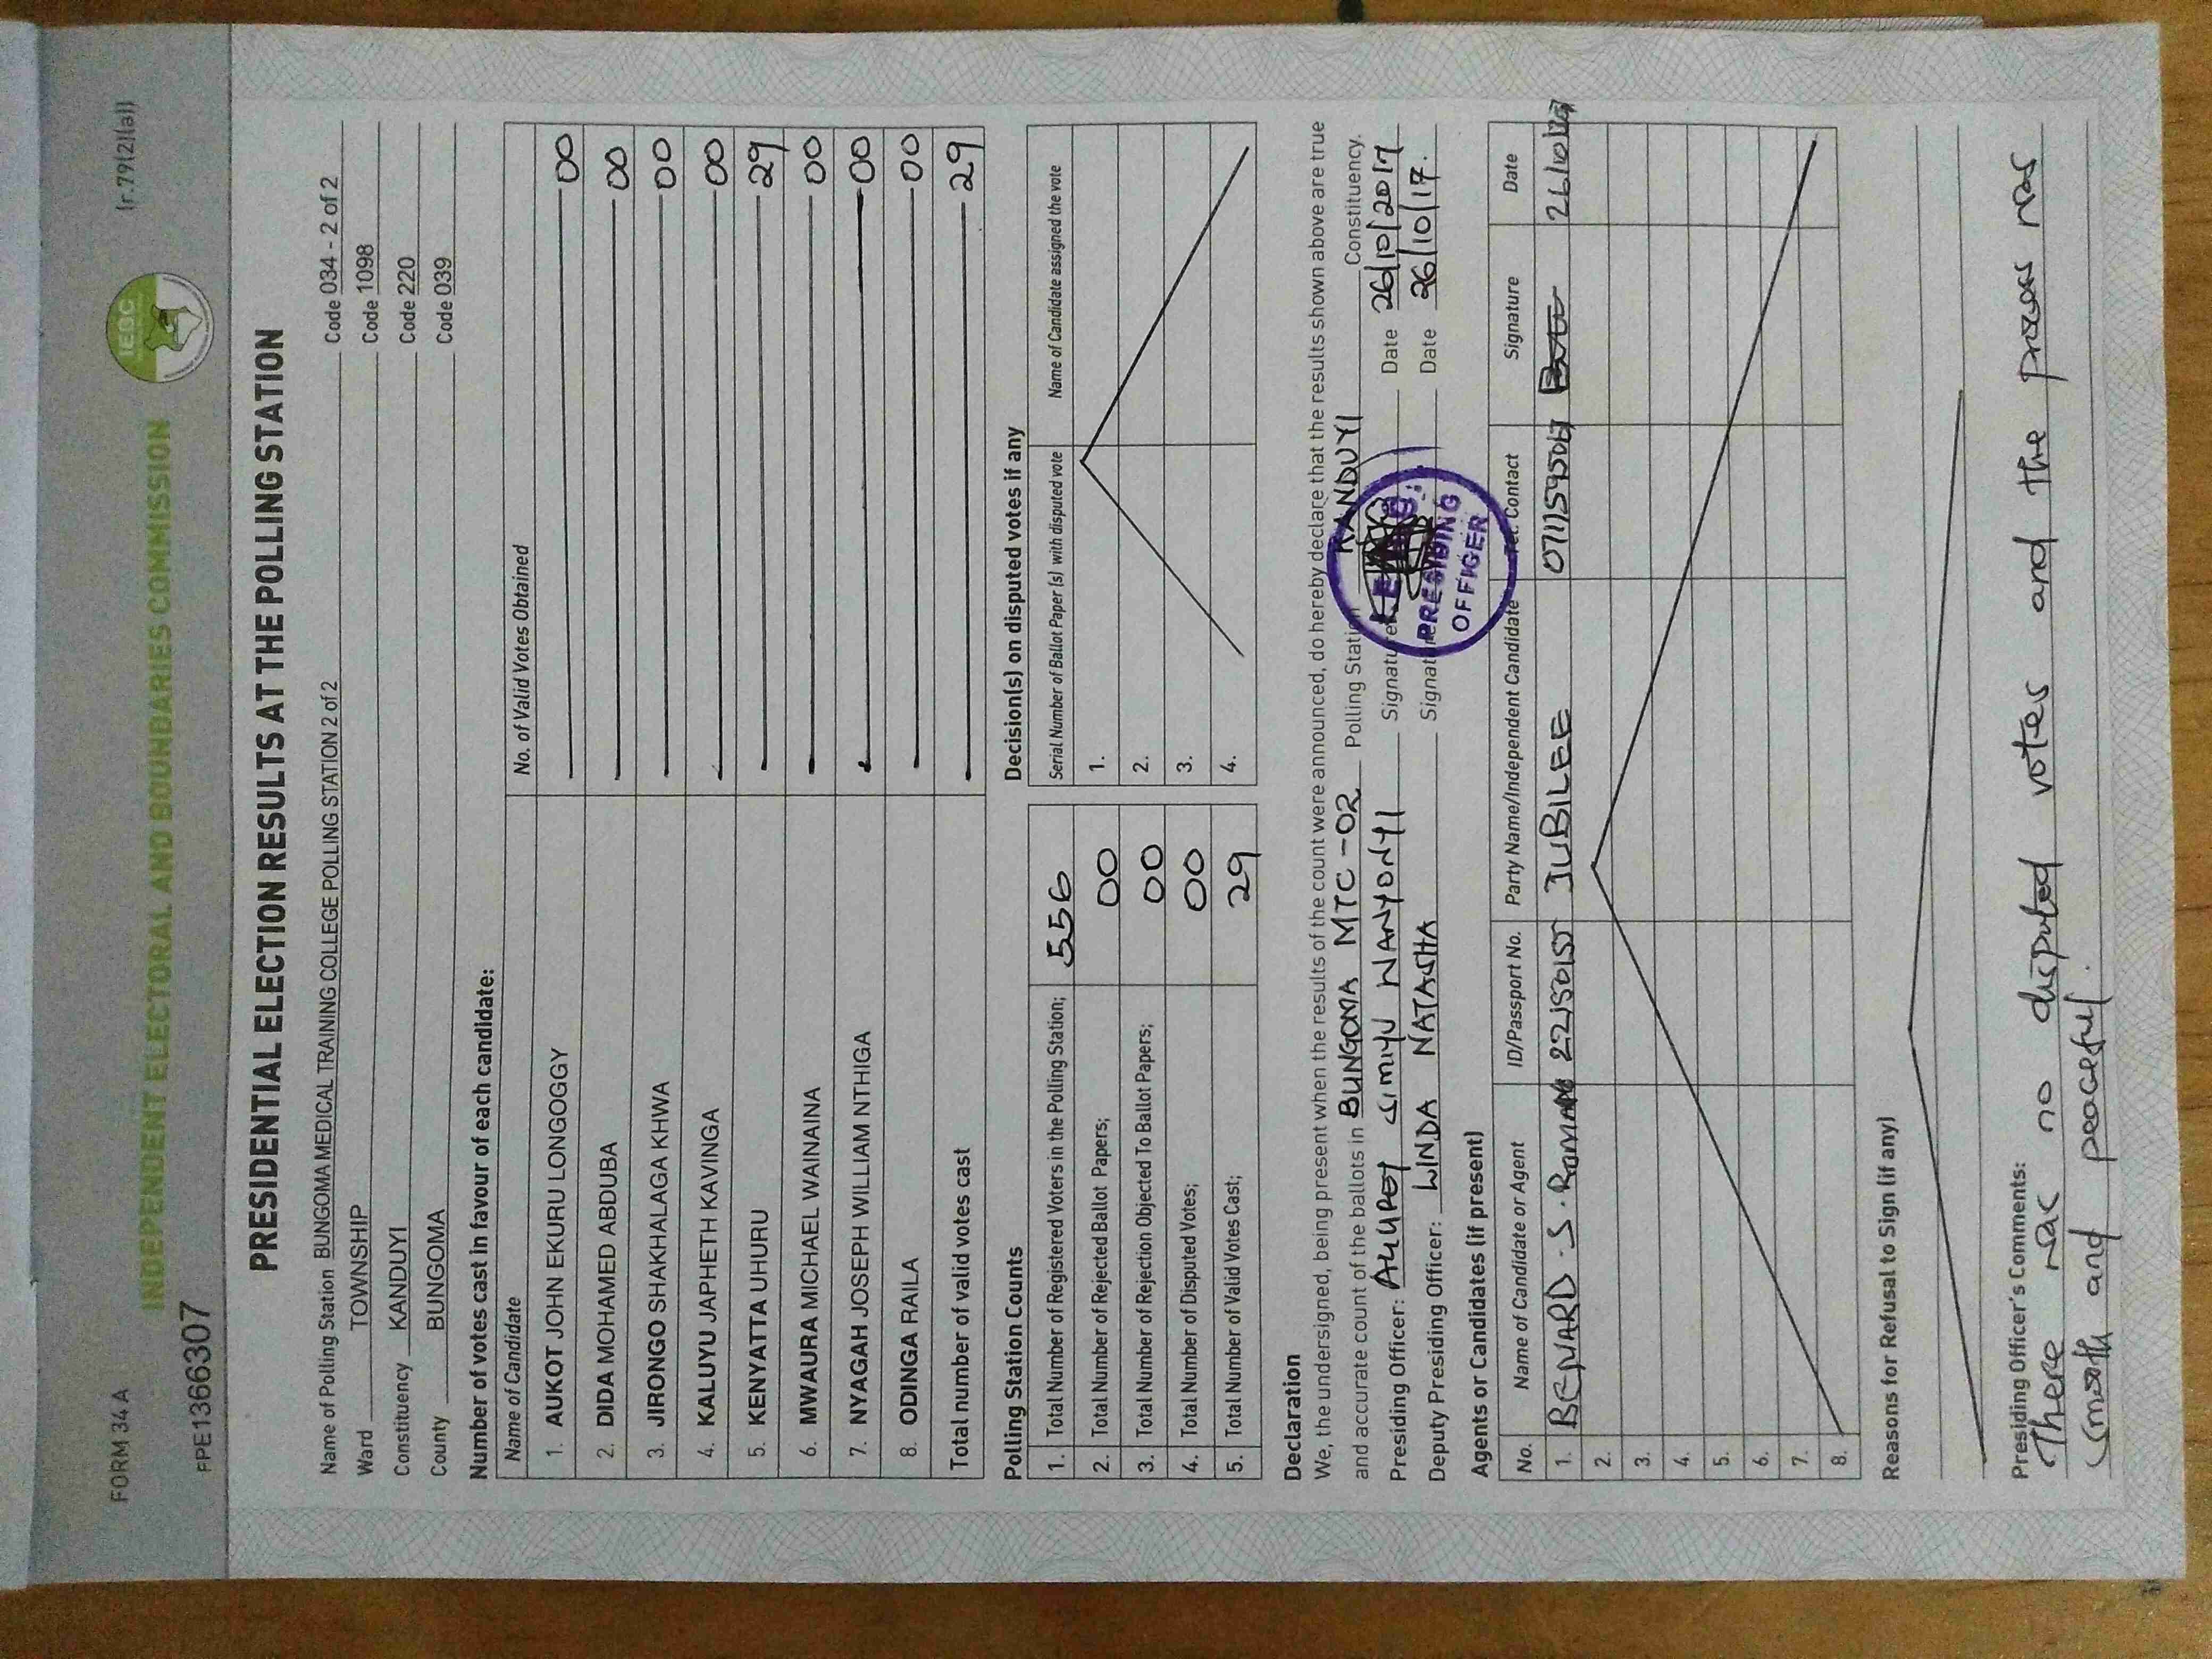 FORM 34 A
(r.79(2)(a))
INDEPENDENT ELECTORAL AND BOUNDARIES COMMISSION
IEBC
FPE1366307
PRESIDENTIAL ELECTION RESULTS AT THE POLLING STATION
Name of Polling Station BUNGOMA MEDICAL TRAINING COLLEGE POLLING STATION 2 of 2 Code 034 - 2 of 2
Ward TOWNSHIP Code 1098
Constituency KANDUYI Code 220
County BUNGOMA Code 039
Number of votes cast in favour of each candidate:
Name of Candidate No. of Valid Votes Obtained
1. AUKOT JOHN EKURU LONGOGGY 00
2. DIDA MOHAMED ABDUBA 00
3. JIRONGO SHAKHALAGA KHWA 00
4. KALUYU JAPHETH KAVINGA 00
5. KENYATTA UHURU 29
6. MWAURA MICHAEL WAINAINA 00
7. NYAGAH JOSEPH WILLIAM NTHIGA 00
8. ODINGA RAILA 00
Total number of valid votes cast 29
Polling Station Counts
1. Total Number of Registered Voters in the Polling Station; 556
2. Total Number of Rejected Ballot Papers; 00
3. Total Number of Rejection Objected To Ballot Papers; 00
4. Total Number of Disputed Votes; 00
5. Total Number of Valid Votes Cast; 29
Decision(s) on disputed votes if any
Serial Number of Ballot Paper (s) with disputed vote Name of Candidate assigned the vote
1.
2.
3.
4.
Declaration
We, the undersigned, being present when the results of the count were announced, do hereby declare that the results shown above are true
and accurate count of the ballots in BUNGOMA MTC -02 Polling Station KANDUYI Constituency.
Presiding Officer: SIMIYU WANYONYI Signature Date 26/10/2017
Deputy Presiding Officer: LINDA NATASHA Signature Date 26/10/17.
PRESIDING
OFFICER
Agents or Candidates (if present)
No. Name of Candidate or Agent ID/Passport No. Party Name/Independent Candidate Tel. Contact Signature Date
1. S. JUBILEE
2.
3.
4.
5.
6.
7.
8.
Reasons for Refusal to Sign (if any)
Presiding Officer's Comments:
There was no disputed votes and the process was
smooth and peaceful.